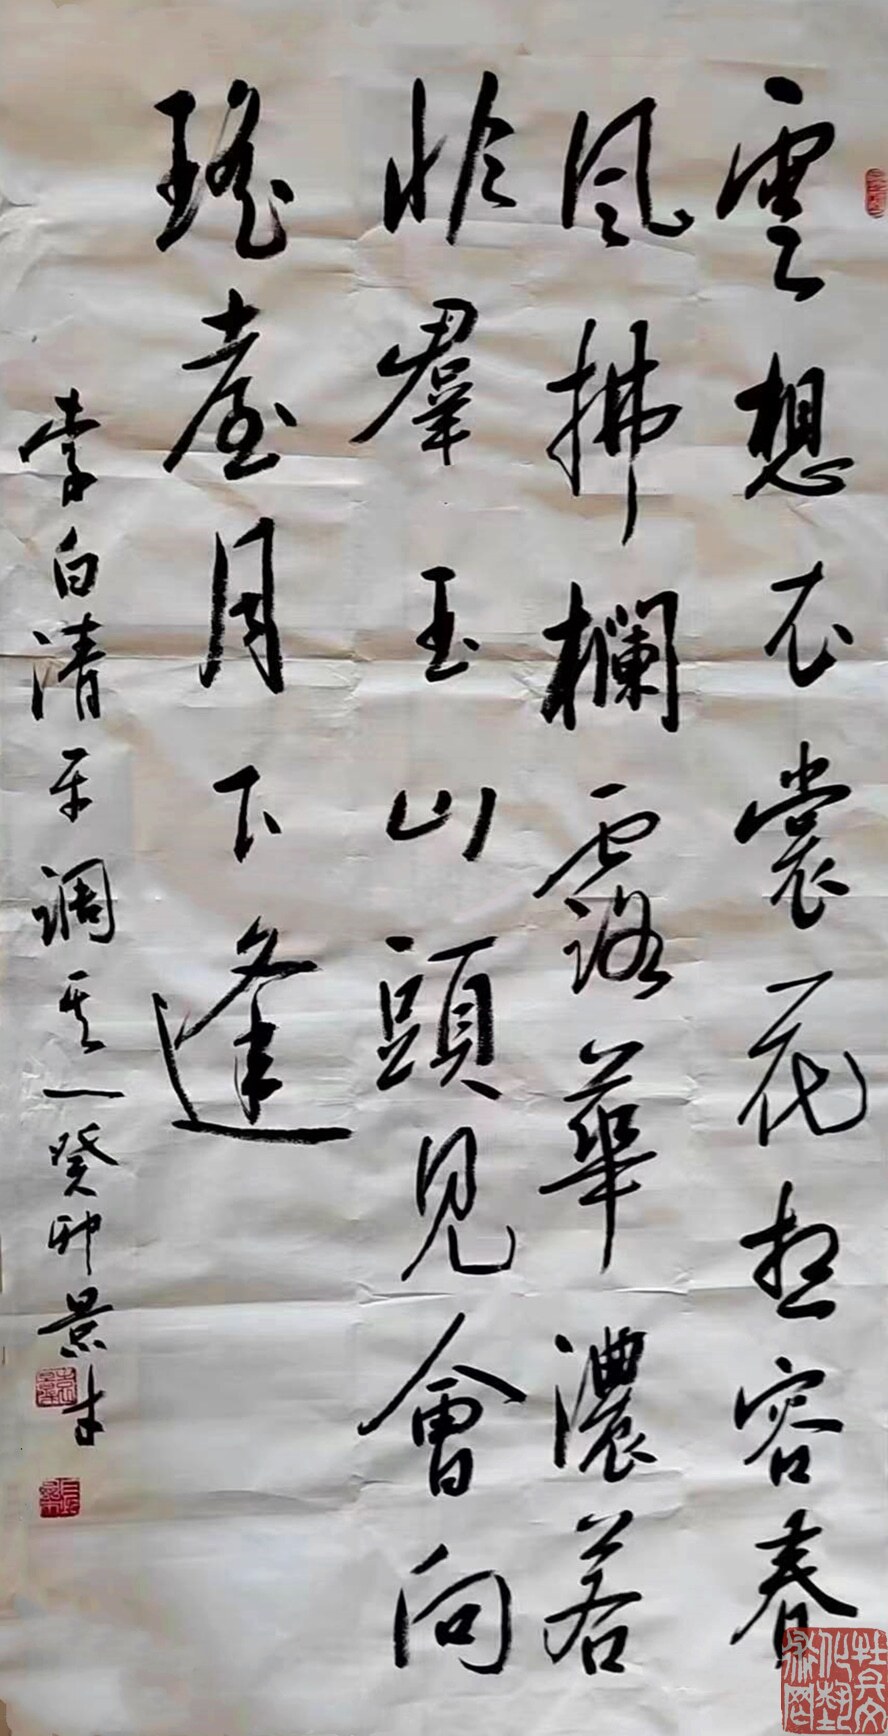 雲想衣裳花想容春
風拂欄露華濃若
非羣玉山頭見會向
瑤臺月下逢
李白清平調其一癸卯景